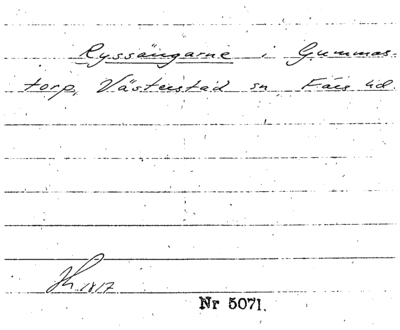 Ryssängarne i Gummas-
torp, Västerstad sn Färs hd.
Hk 1817
Nr 5071.